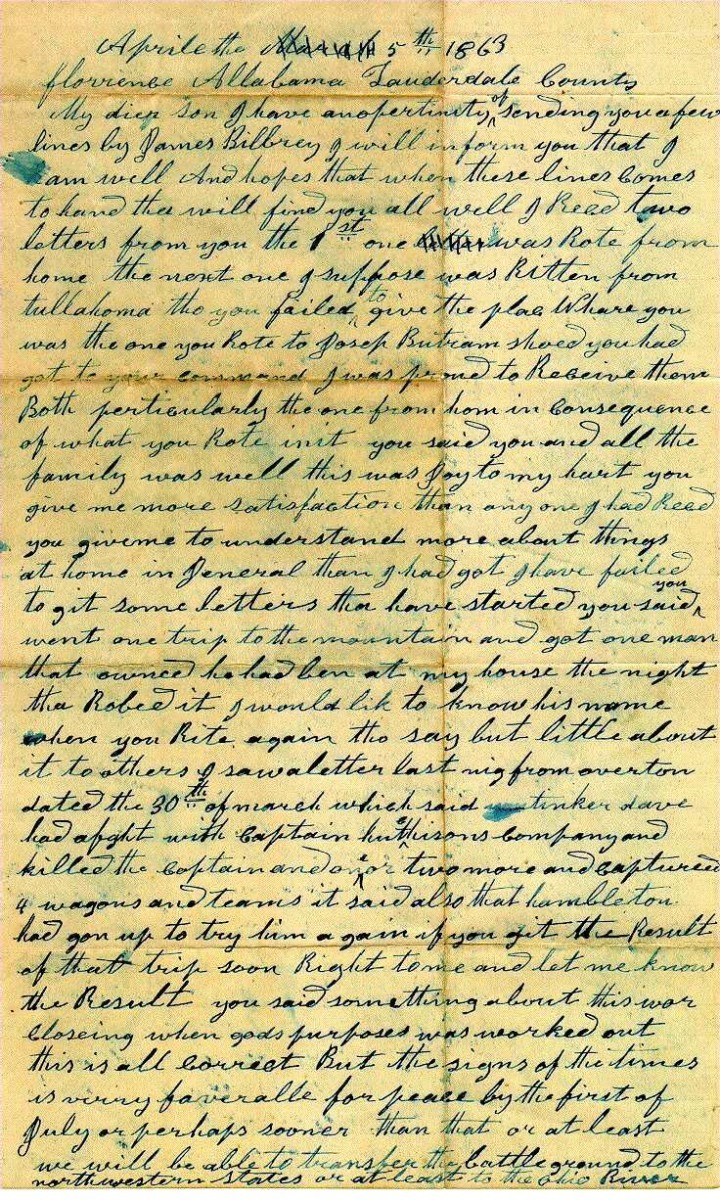 Aprile the 5th 1863
florrence Allabama Lauderdale County
My dier Son I have an opertinity of sending you a few
lines by James Bilbrey I will inform you that I
am well And hopes that when these lines Comes
to hand tha will find you all well I Recd two
letters from you the 1st one was Rote from
home the next one I suppose was Ritten from
tullahoma tho you failed to give the plac Whare you
was the one you Rote to Josep Butram shoed you had
got to your command I was proud to Receive them
Both perticularly the one from hom in Consequence
of what you Rote in it you said you and all the
family was well this was Joy to my hart you
give me more satisfaction than any one I had Recd
you give me to understand more about things
at home in General than I had got I have failed
to git some letters tha have started you said you
went one trip to the mountain and got one man
that owned he had ben at my house the night
tha Robed it I would lik to know his name
when you Rite again tho say but little about
it to others I saw a letter last nig from overton
dated the 30th of march which said tinker dave
had a fght with Captain huthisons Company and
killed the Captain and one or two more and Captured
4 wagons and teams it said also that hambleton
had gon up to try him a gain if you git the Result
of that trip soon Right to me and let me know
the Result you said something about this wor
Closeing when gods purposes was worked out
this is all Correct But the signs of the times
is verry faveralle for peace by the first of
July or perhaps sooner than that or at least
we will be able to transfer the battle ground to the
northwestern states or at least to the Ohio River